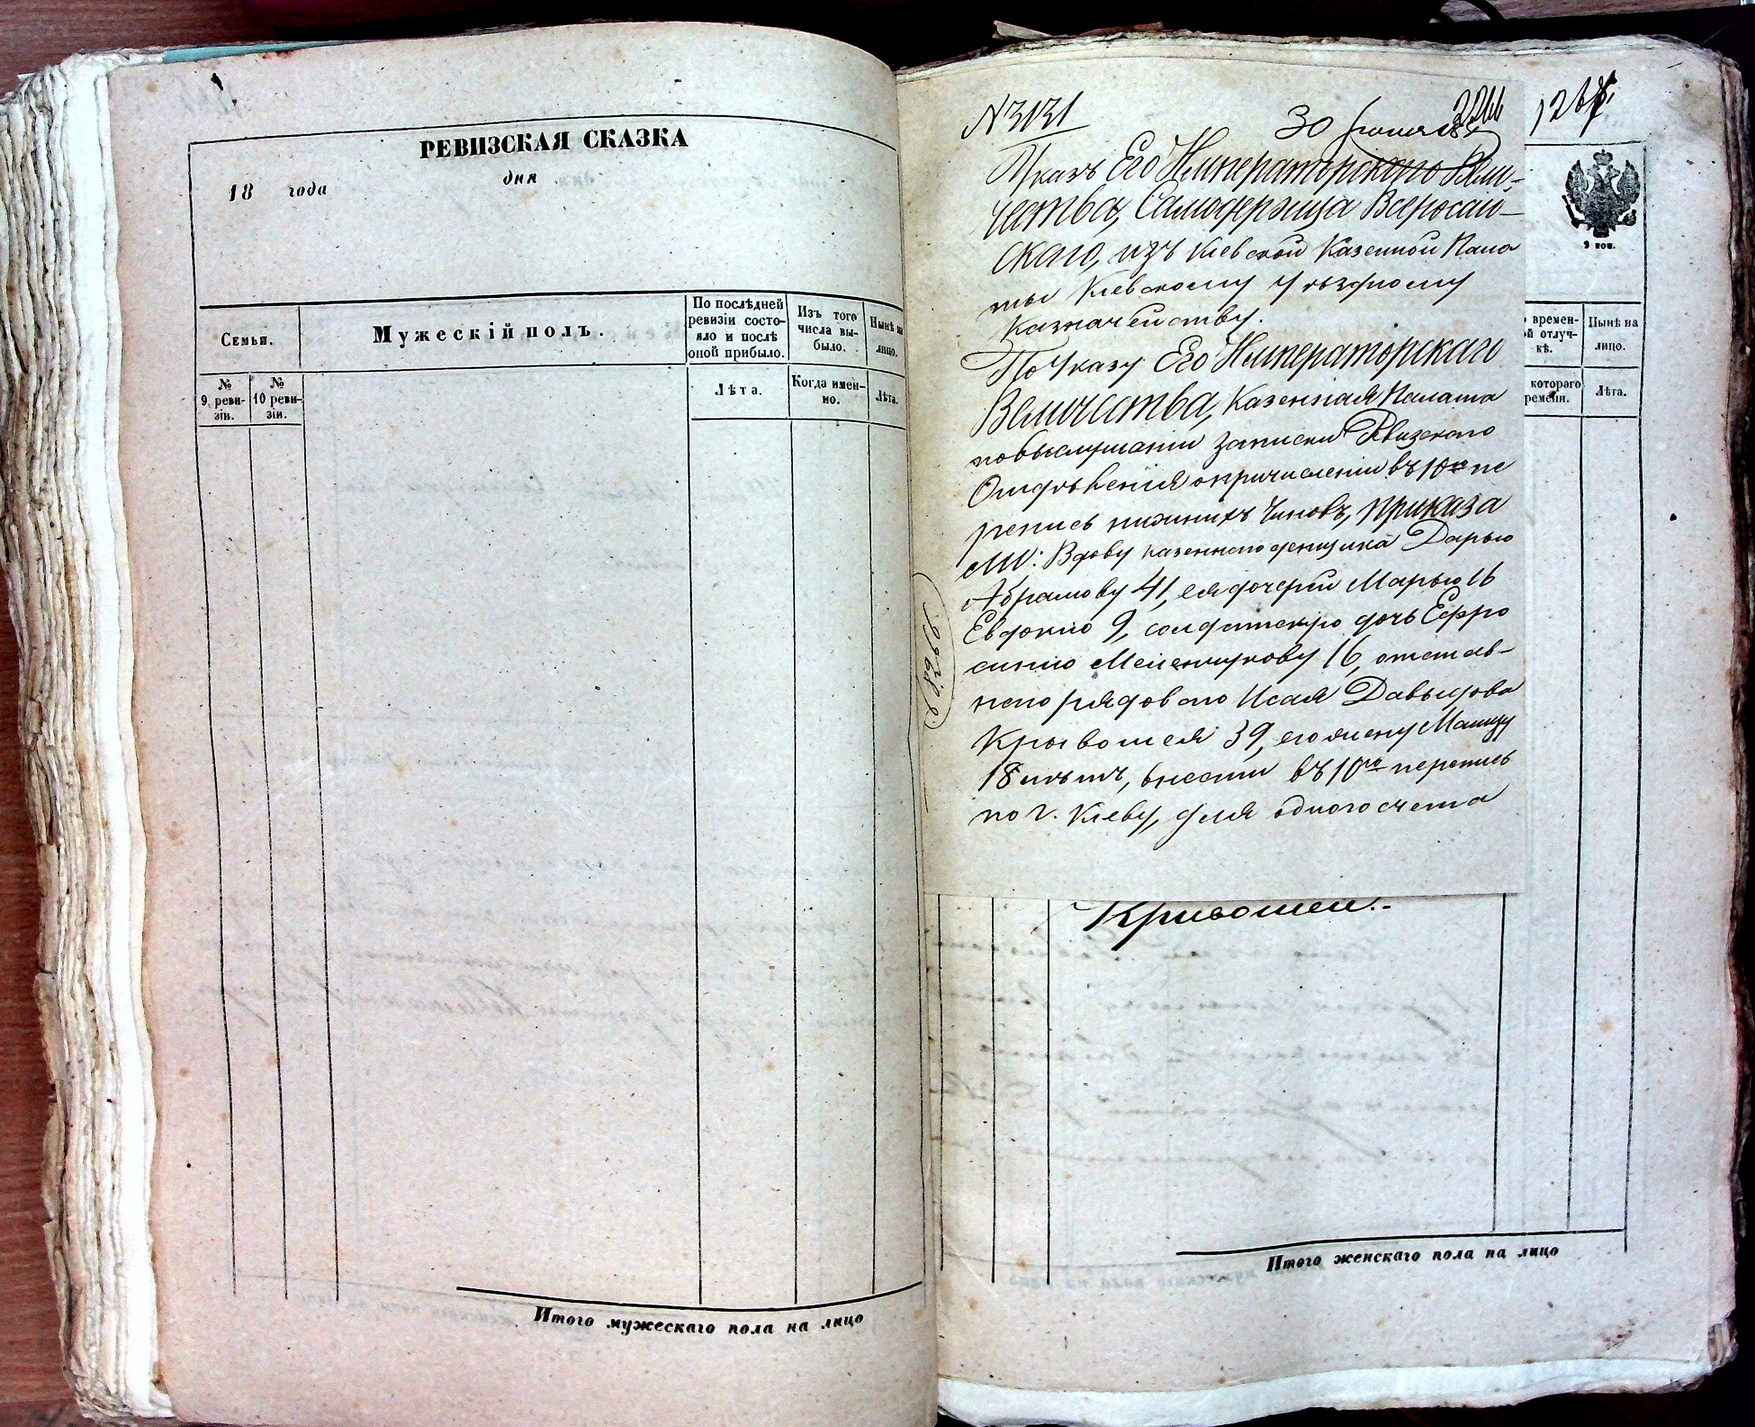 РЕВИЗСКАЯ СКАЗКА
18 года дня
Семьи.
Мужескій полъ.
По послѣдней ревизіи состояло и послѣ оной прибыло.
Изъ того числа выбыло.
Нынѣ на лицо.
№ 9 ревизіи.
№ 10 ревизіи.
Лѣта.
Когда именно.
Лѣта.
Итого мужескаго пола на лицо
№3131
30 Іюня
Указъ Его Императорскаго Вели-
чества, Самодержца Всеросій-
скаго, изъ Кіевской Казенной Пала
ты Кіевскому Уѣздному
Казначейству.
По Указу Его Императорскаго
Величества, Казенная Палата
по выслушаніи записки Ревизскаго
Отдѣленія о причисленіи въ 10ю пе
репись нижнихъ Чиновъ, приказа
ли: Вдову казеннаго деньщика Дарью
Абрамову 41, ея дочерей Марью 16
Евдокію 9, солдатскую дочь Ефро
синію Меленчукову 16, отстав-
наго рядоваго Исая Давыдова
Кривошея 39, его жену Малицу
18 лѣтъ, внести въ 10ю перепись
по г. Кіеву, для одного счета
Кривошеи.
9 коп.
времен-
й отлуч-
кѣ.
Нынѣ на
лицо.
котораго
времени.
Лѣта.
Итого женскаго пола на лицо